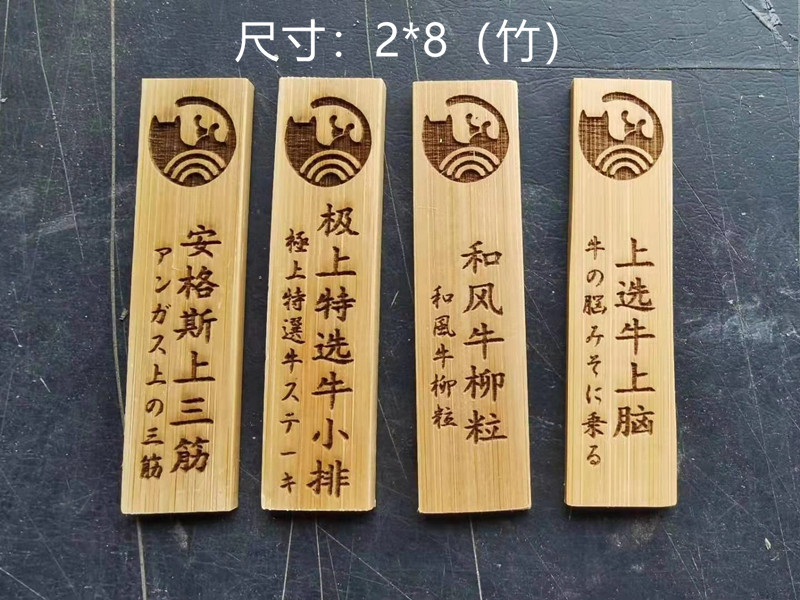 尺寸：2*8（竹）
安格斯上三筋
アンガス上の三筋
极上特选牛小排
極上特選牛ステーキ
和风牛柳粒
和風牛柳粒
上选牛上脑
牛の脳みそに乗る